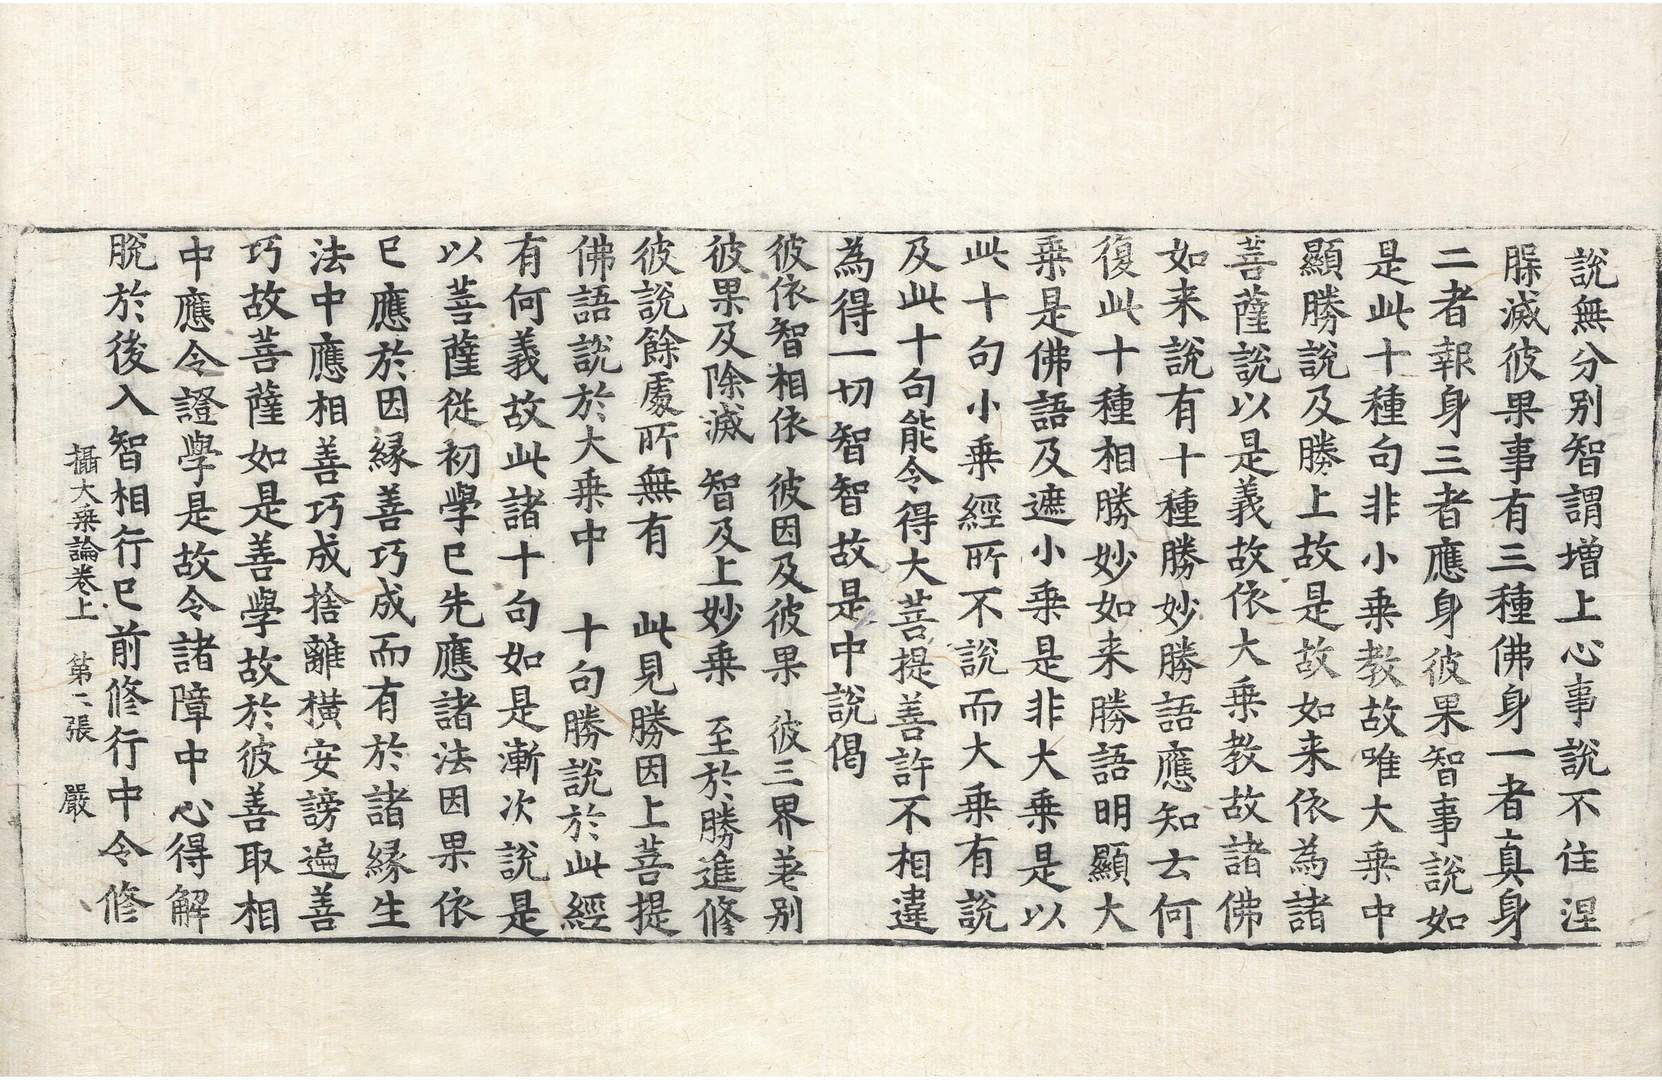 說無分別智謂增上心事說不住涅
脲滅彼果事有三種佛身一者真身
二者報身三者應身彼果智事說如
是此十種句非小乗教故唯大乗中
顯勝說及勝上故是故如来依為諸
菩薩說以是義故依大乗教故諸佛
如来說有十種勝妙勝語應知云何
復此十種相勝妙如来勝語明顯大
乗是佛語及遮小乗是非大乗是以
此十句小乗經所不說而大乗有說
及此十句能令得大菩提善許不相違
為得一切智智故是中說偈
彼依智相依　彼因及彼果　彼三界差別
彼果及除滅　智及上妙乗　至於勝進修
彼說餘處所無有　此見勝因上菩提
佛語說於大乗中　十句勝說於此經
有何義故此諸十句如是漸次說是
以菩薩從初學已先應諸法因果依
已應於因緣善巧成而有於諸緣生
法中應相善巧成捨離橫安謗遍善
巧故菩薩如是善學故於彼善取相
中應令證學是故令諸障中心得解
脫於後入智相行已前修行中令修
攝大乗論卷上　第二張　嚴